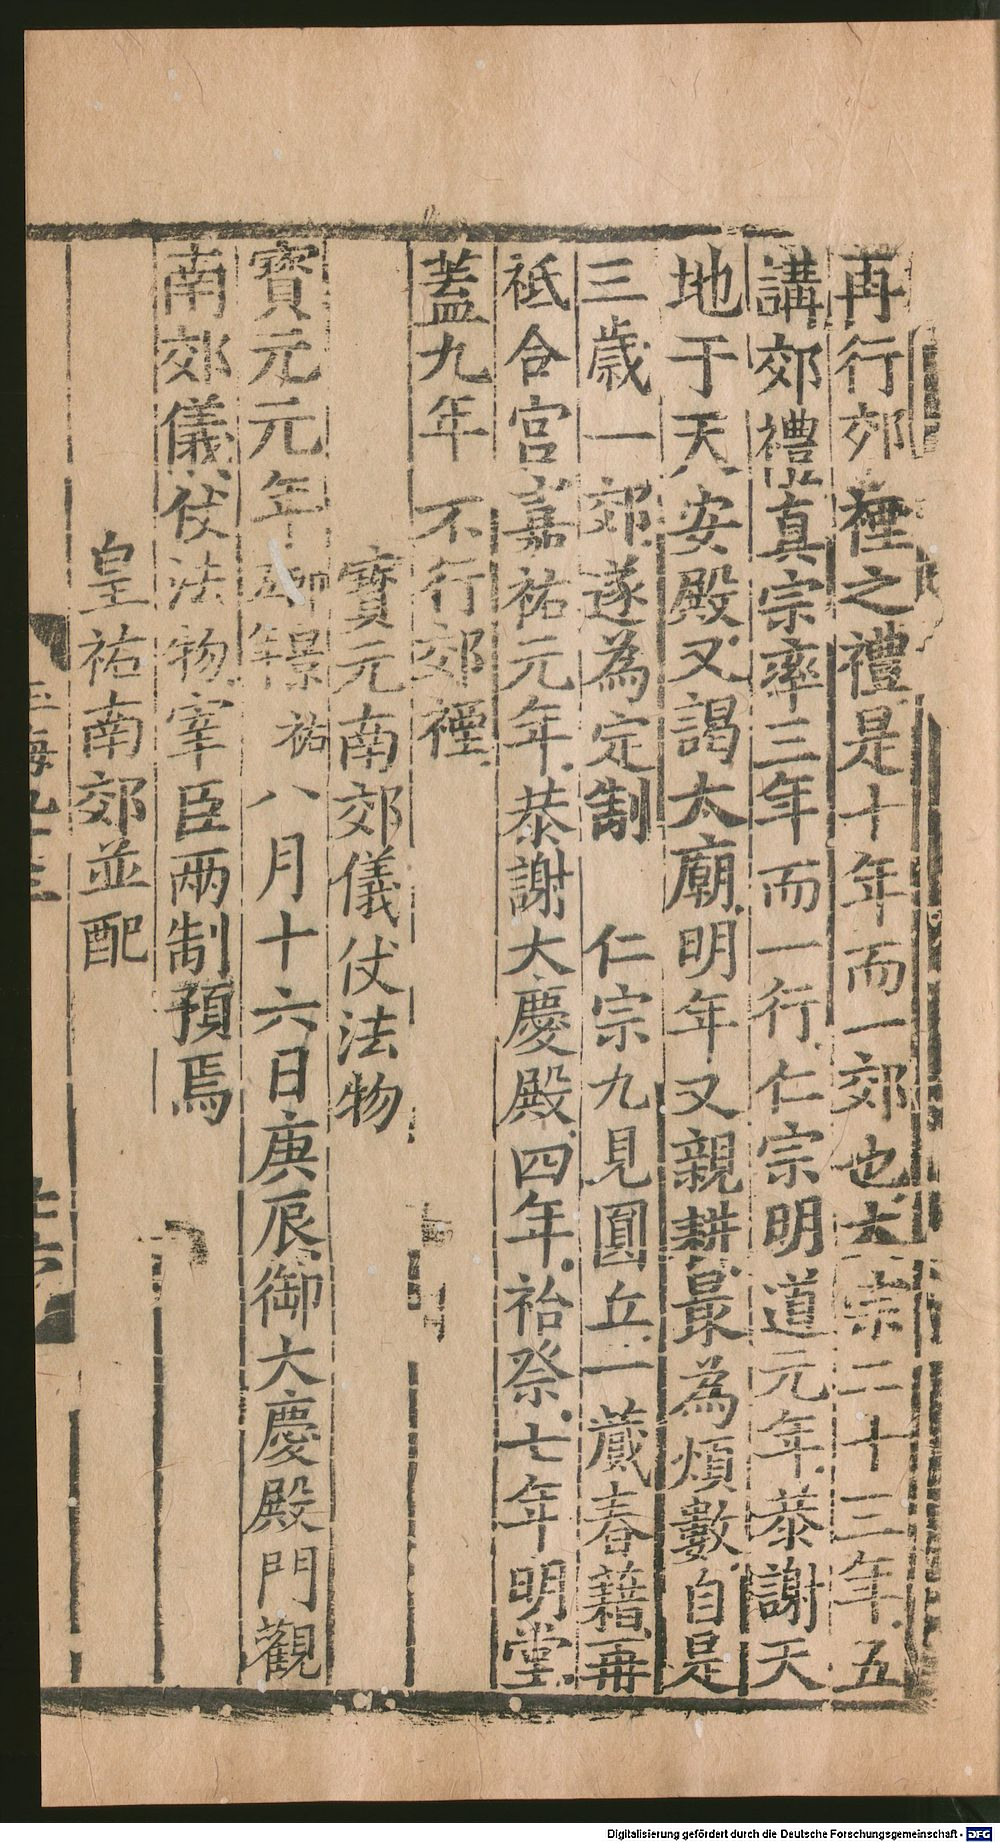 再行郊禋之禮是十年而一郊也太宗二十三年五
講郊禮真宗率三年而一行仁宗明道元年恭謝天
地于天安殿又謁太廟明年又親耕最為煩數自是
三歲一郊遂為定制 仁宗九見圓丘一藏春籍再
祗合宮嘉祐元年恭謝大慶殿四年祫祭七年明堂
蓋九年不行郊禋
寶元南郊儀仗法物
寶元元年 景祐 八月十六日庚辰御大慶殿門觀
南郊儀仗法物宰臣兩制預焉
皇祐南郊並配
Digitalisierung gefördert durch die Deutsche Forschungsgemeinschaft - DFG